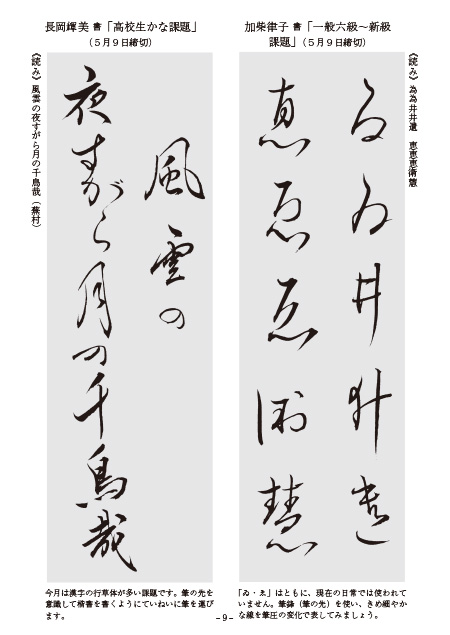 加柴律子 書「一般六級～新級
課題」（５月９日締切）
《読み》為為井井遺　恵恵恵衛慧
ゐゐ井井遺
恵ゑゑ衛慧
「ゐ・ゑ」はともに、現在の日常では使われて
いません。筆鋒（筆の先）を使い、きめ細やか
な線を筆圧の変化で表してみましょう。
長岡輝美 書「高校生かな課題」
（５月９日締切）
風雲の
夜すがら月の千鳥哉
《読み》風雲の夜すがら月の千鳥哉（蕪村）
今月は漢字の行草体が多い課題です。筆の先を
意識して楷書を書くようにていねいに筆を運び
ます。
- 9 -